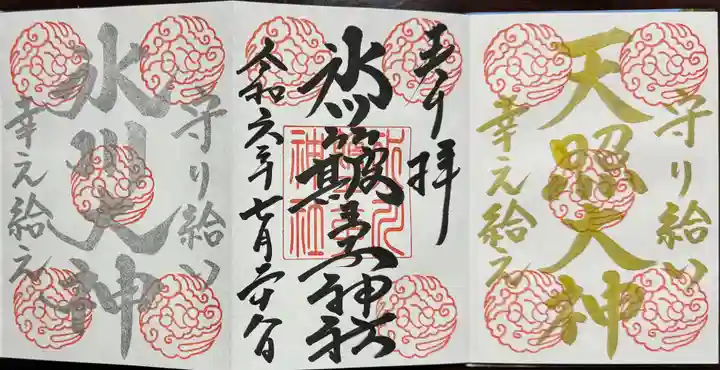 天照大神
守り給い
幸え給え
奉拝
氷川簸王子神社
令和六年七月
氷川大神
守り給い
幸え給え